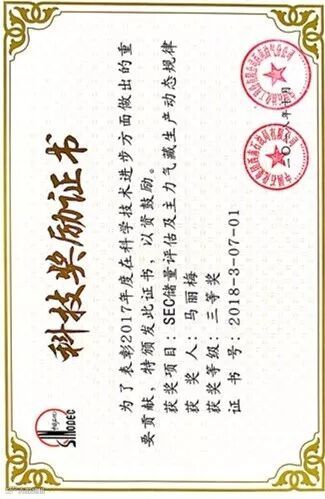 SINODEC
科技奖励证书
为了表彰2017年度在科学技术进步方面做出的重
要贡献,特颁发此证书,以资鼓励。
获奖项目:SEC储量评估及主力气藏生产动态规律
获奖人:马丽梅
获奖等级:三等奖
证书号:2018-3-07-01